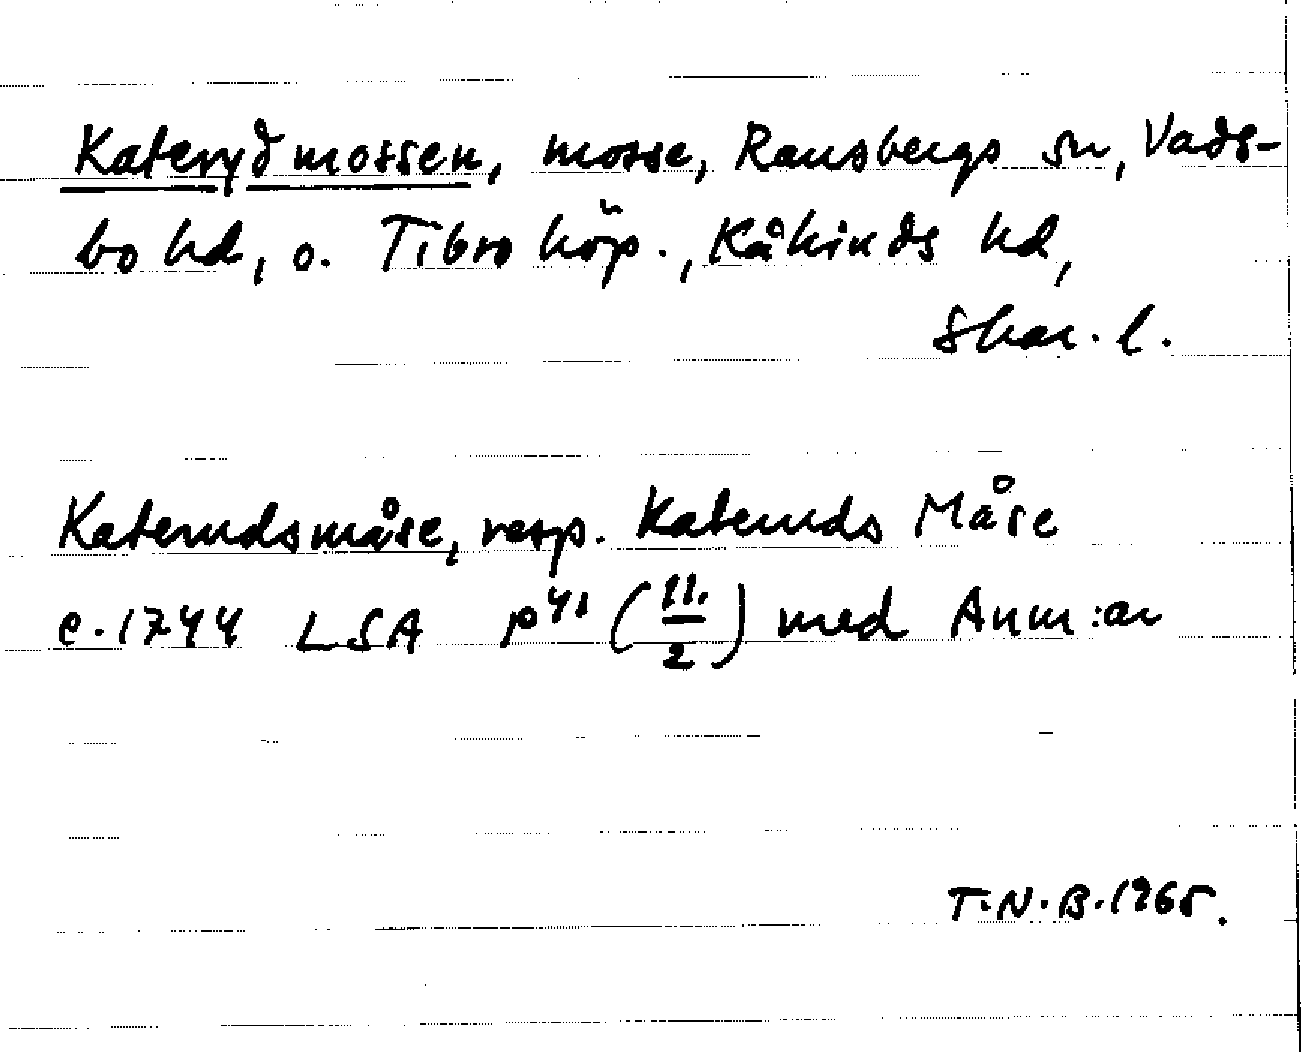 Taterydmossen, mosse, Ransbergs sn, Vads-
bo hd, o. Tibro köp., Kåkinds hd,
Skar. l.
Katerudsmåse, resp. Kateruds Måse
c. 1744 LSA P⁴¹ (11./2) med Anm:ar
T.N.B. 1965.